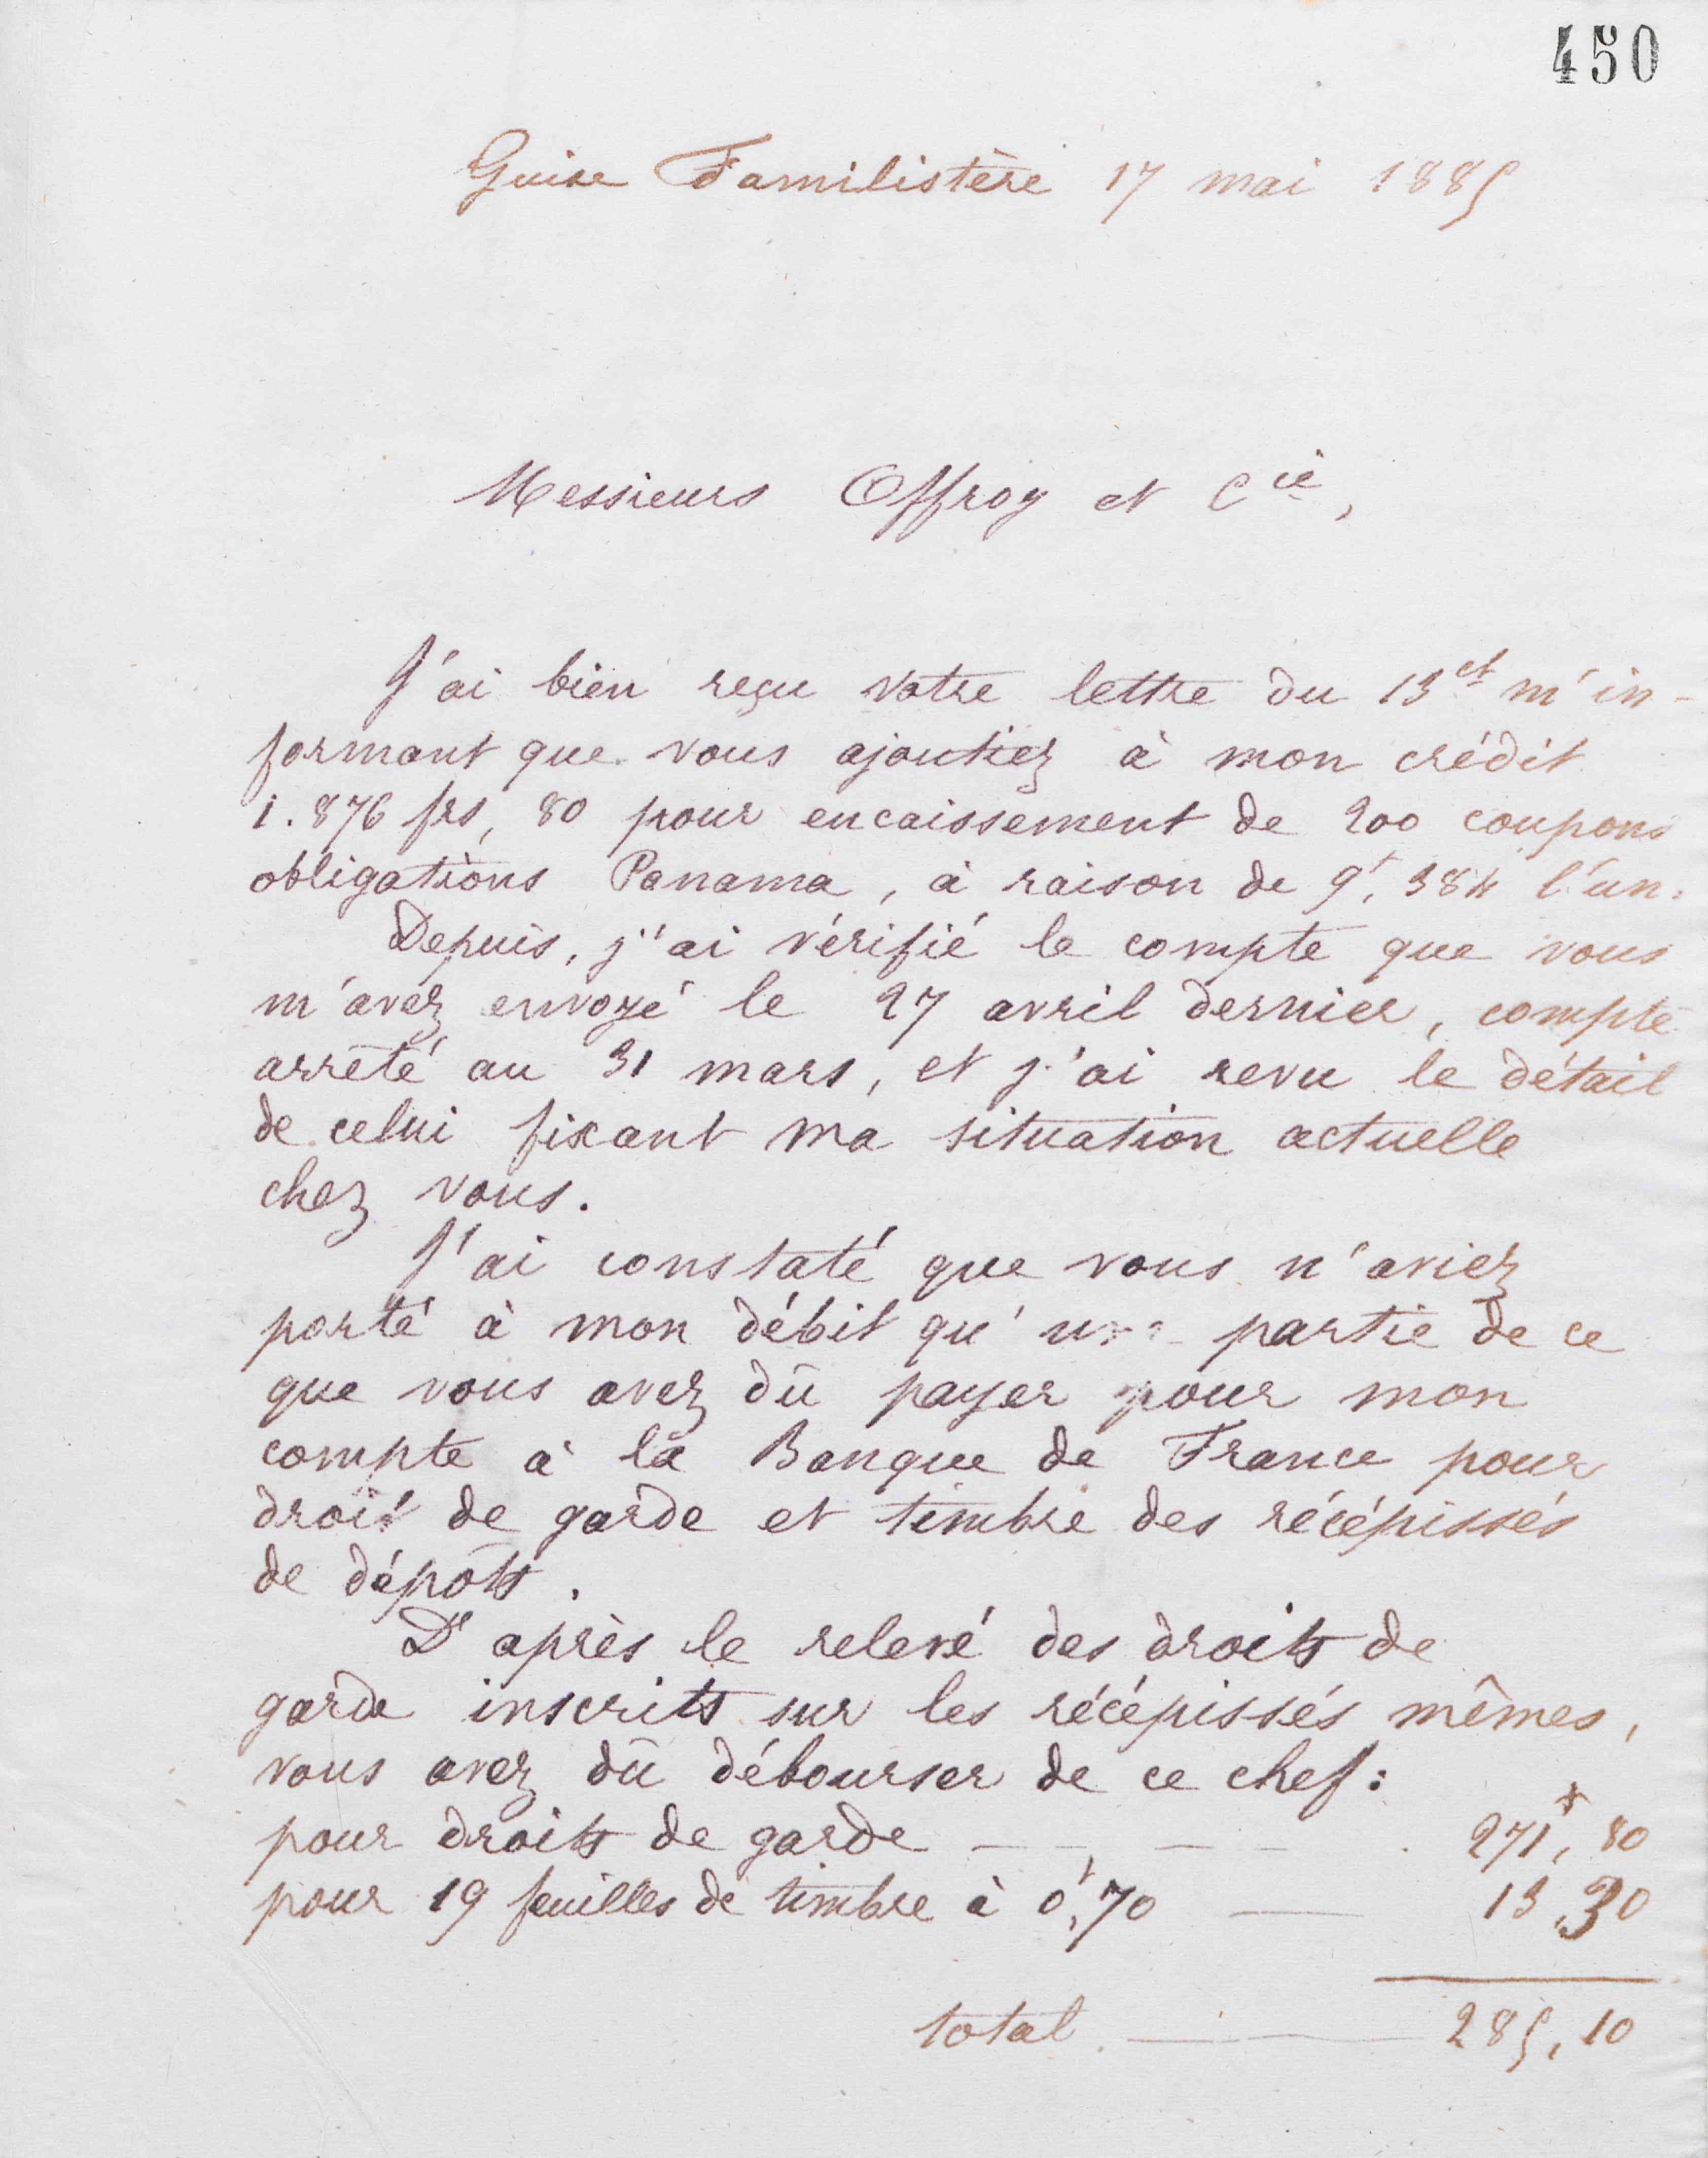 450
Guise Familistère 17 mai 1885
Messieurs Offroy et Cie,
J'ai bien reçu votre lettre du 13 ct m'in-
formant que vous ajoutiez à mon crédit
1.876 frs, 80 pour encaissement de 200 coupons
obligations Panama, à raison de 9f,384 l'un.
Depuis, j'ai vérifié le compte que vous
m'avez envoyé le 27 avril dernier, compte
arrêté au 31 mars, et j'ai revu le détail
de celui fixant ma situation actuelle
chez vous.
J'ai constaté que vous n'aviez
porté à mon débit qu'une partie de ce
que vous avez dû payer pour mon
compte à la Banque de France pour
droit de garde et timbre des récépissés
de dépôts.
D'après le relevé des droits de
garde inscrits sur les récépissés mêmes,
vous avez dû débourser de ce chef:
pour droits de garde — — — — 271f,80
pour 19 feuilles de timbre à 0f,70 — 13,30
total. — 285,10